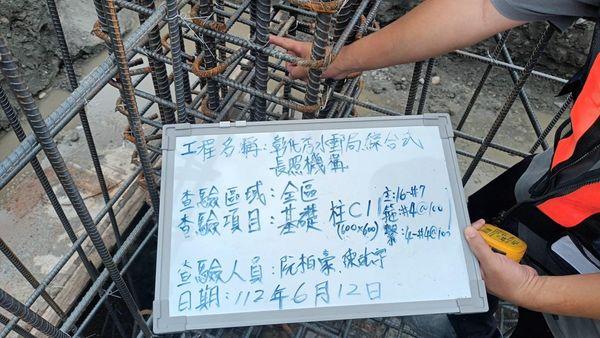 工程名稱:彰化秀水郵局綜合式
長照機構
查驗區域:全區
查驗項目:基礎 柱C11
(600×600)
主:16-#7
箍:#4@100
繫:4-#4@100
查驗人員:阮柏豪
日期:112年6月12日